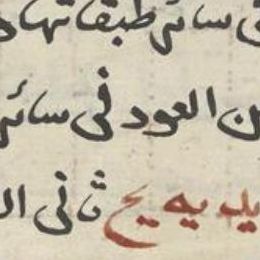 فى سائر طبقاتها
العود فى سائر
يد يه يح ثانى